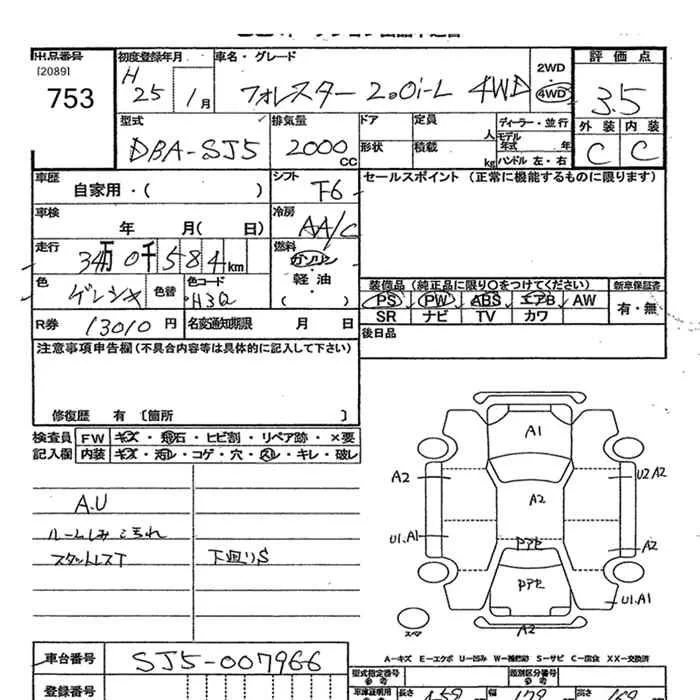 出品番号
[2089]
753
初度登録年月
H
25 1月
車名・グレード
フォレスター 2.0i-L 4WD
2WD
4WD
評価点
3.5
外装 内装
C C
型式
DBA-SJ5
排気量
2000 CC
ドア 定員 人
形状 積載 kg
ディーラー・並行
モデル年式 年
ハンドル 左・右
車歴
自家用・( )
シフト
F6
セールスポイント (正常に機能するものに限ります)
車検
年 月( 日)
冷房
AA/C
走行
34万 0千 584 km
燃料
ガソリン
軽油
( )
色
色替
色コード
H3Q
装備品 (純正品に限り○をつけてください)
新車保証書
PS PW ABS エアB AW
有・無
SR ナビ TV カワ
R券 13010 円
名変通知期限 月 日
後日品
注意事項申告欄(不具合内容等は具体的に記入して下さい)
修復歴 有 [箇所 ]
検査員 FW キズ・飛石・ヒビ割・リペア跡・×要
記入欄 内装 キズ・汚レ・コゲ・穴・スレ・キレ・破レ
A.U
ルームしみこきれ
スタットレスT 下廻りS
A1
A2
U2 A2
A2
U1.A1
A2
Pアセ
Pアセ
U1.A1
A2
スペア
A-キズ E-エクボ U-凹み W-補修跡 S-サビ C-腐食 XX-交換済
車台番号 SJ5-007966
登録番号
型式指定番号
参考
類別区分番号
参考
長さ 459 幅 179 高さ 169